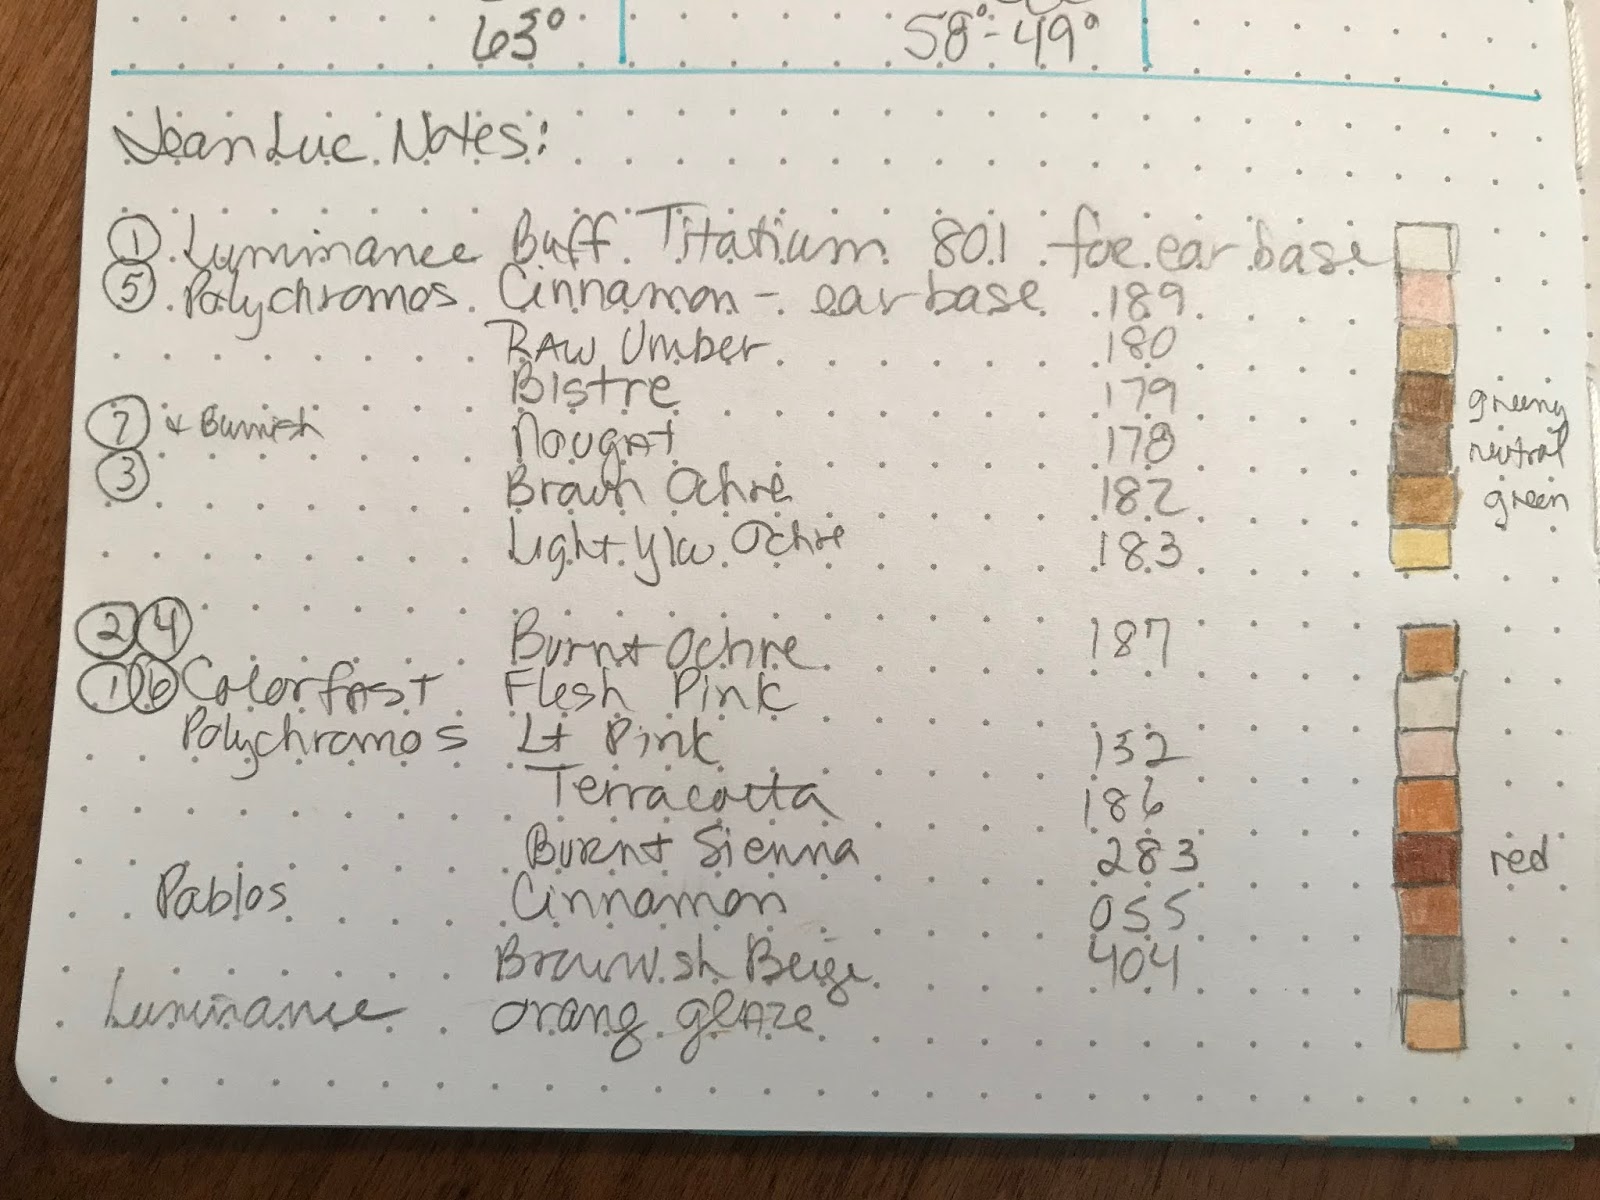 63° 58°-49°
Jean Luc Notes:
① Luminance Buff Titatium 801 for ear base
⑤ Polychromos Cinnamon - ear base 189
RAW Umber 180
Bistre 179 greeny
⑦ + Burnish Nougat 178 neutral
③ Brown Ochre 182 green
Light Ylw Ochre 183
② ④ Burnt Ochre 187
① ⑥ Colorfast Flesh Pink
Polychromos Lt Pink 132
Terracotta 186
Burnt Sienna 283 red
Pablos Cinnamon 055
Brownish Beige 404
Luminance orang glaze